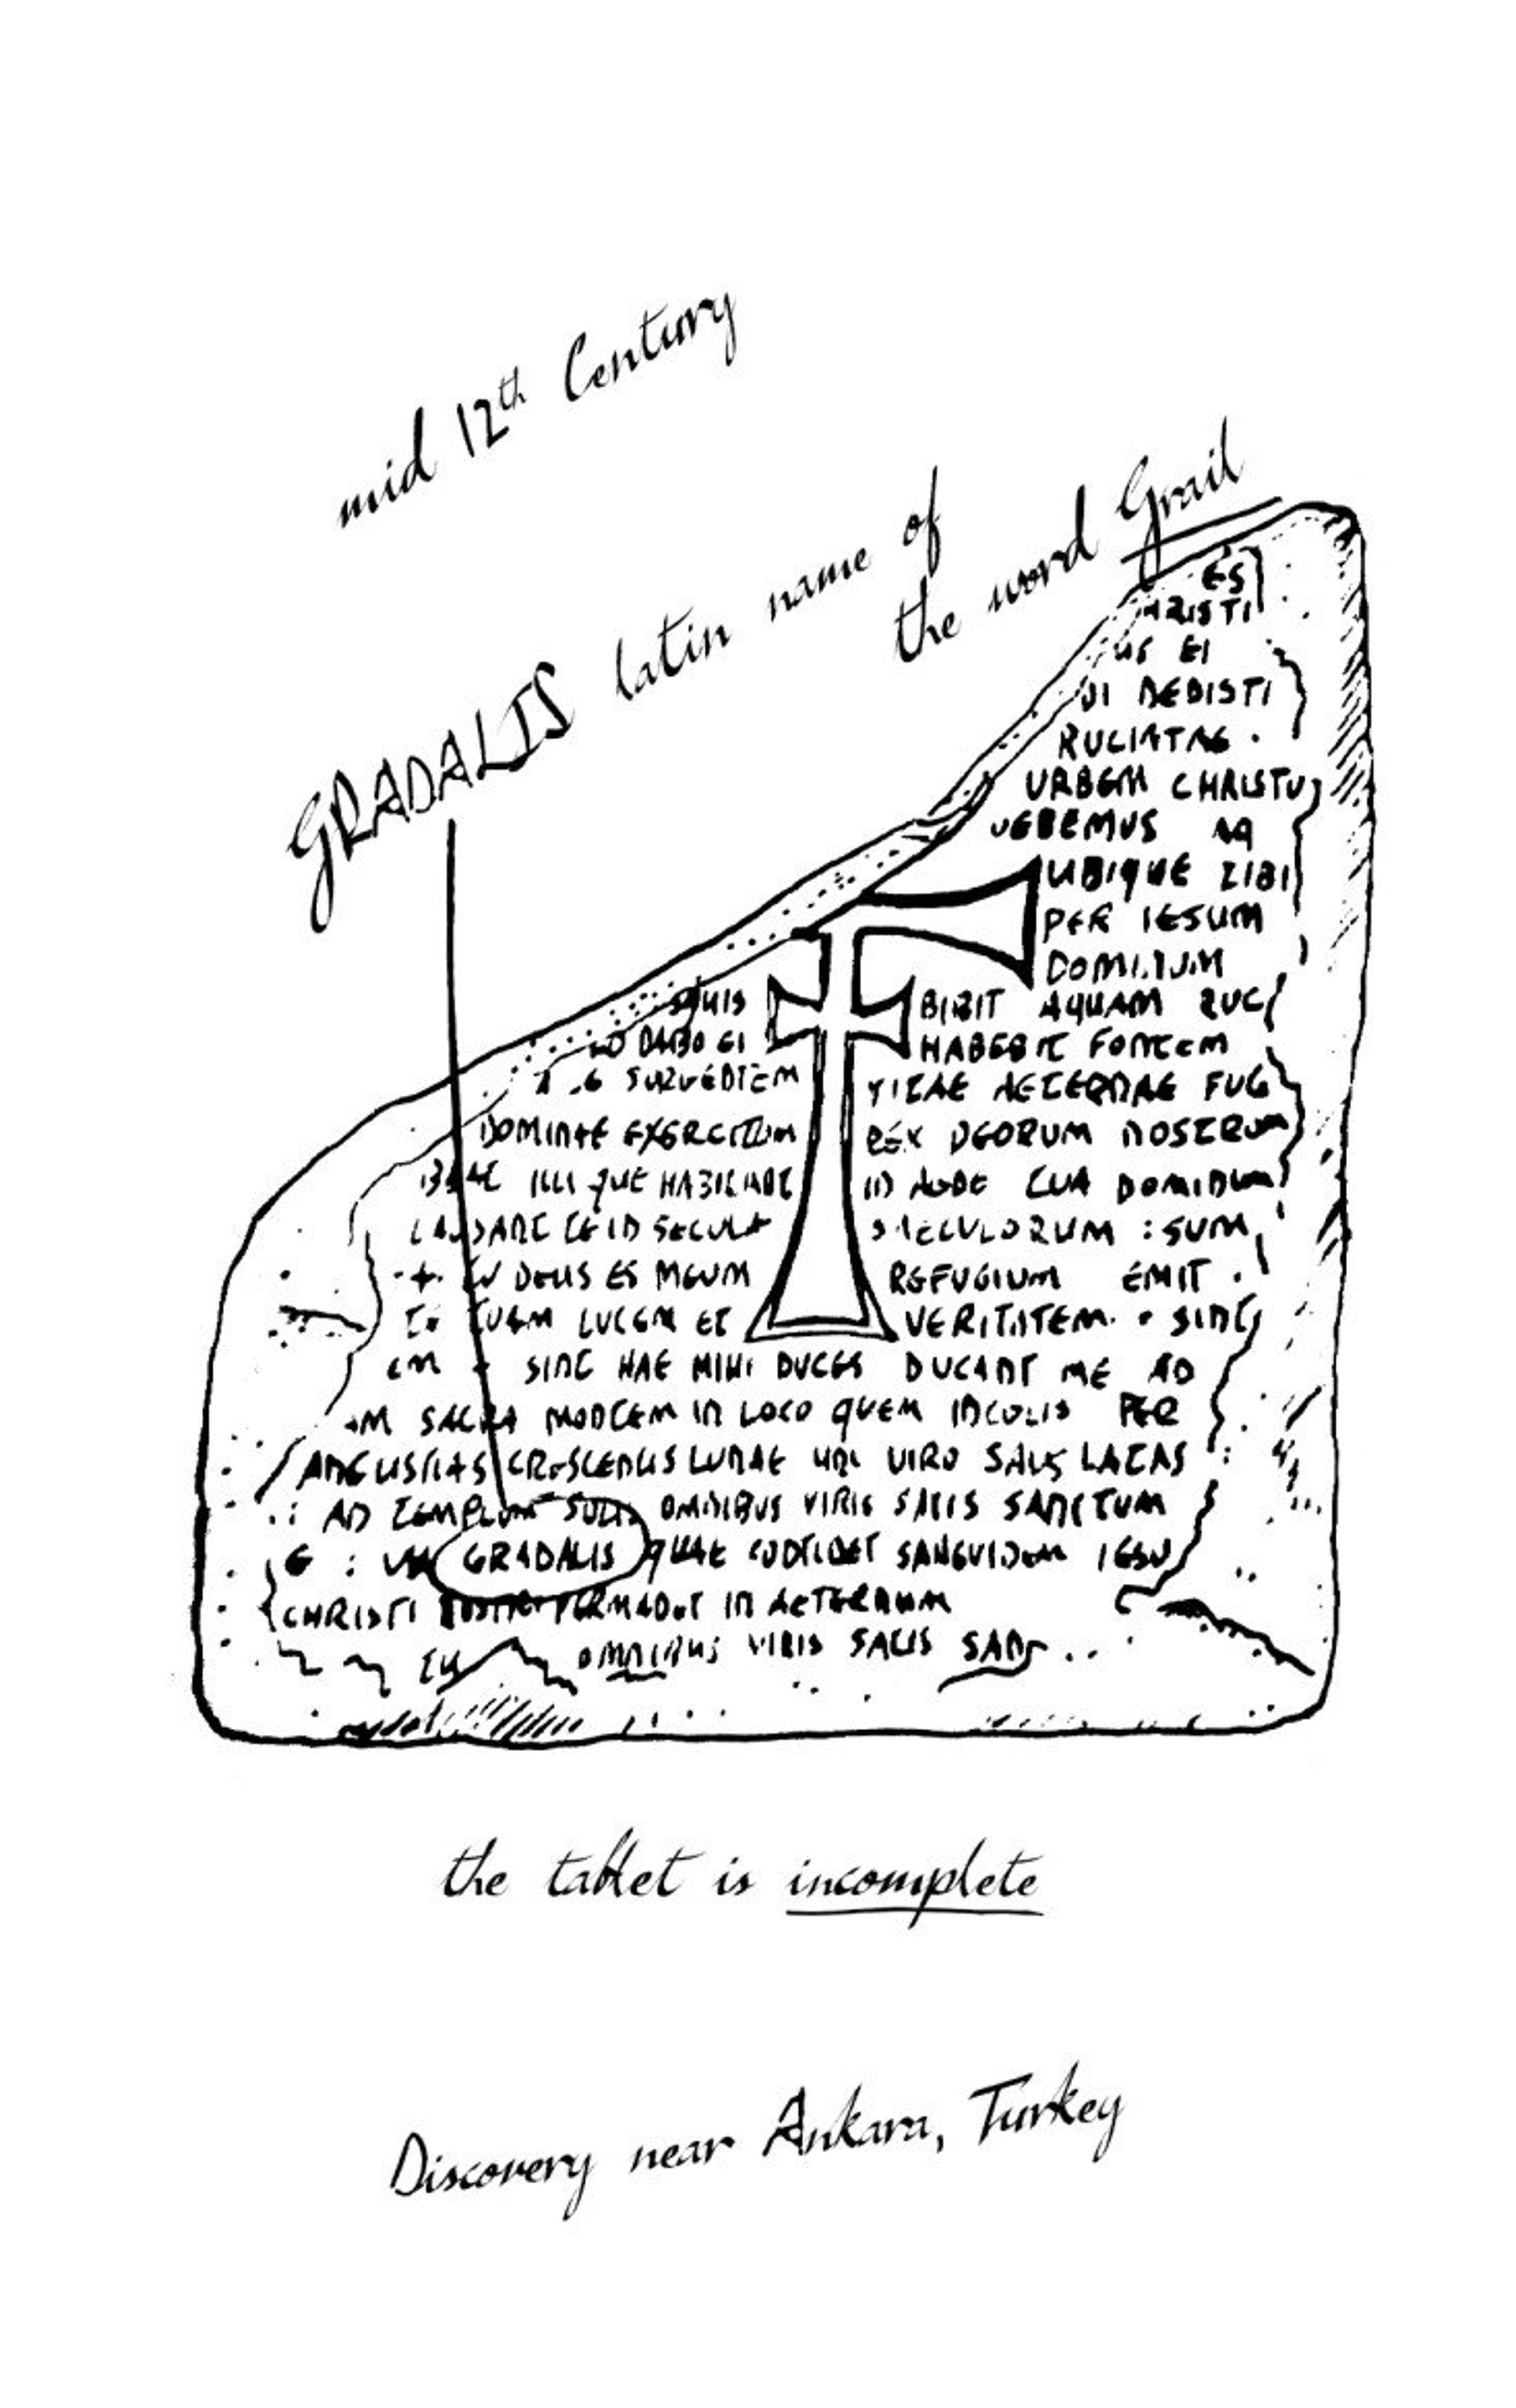 mid 12th Century
GRADALIS latin name of
the word Grail
ES
RISTI
US EI
UI DEDISTI
URBEM CHRISTU
UEBEMUS
UBIQUE TIBI
PER IESUM
DOMINUM
QUIS BIBIT AQUAM
DABO EI HABEBIT FONTEM
VITAE AETERNAE
DOMINAE EXERCITUUM REX DEORUM NOSTRUM
ILLI QUE HABITANT IN DOMINUM
LAUDANT TE IN SECULA SAECULORUM : SUM
TU DEUS ES MEUM REFUGIUM EMIT .
TUAM LUCEM ET VERITATEM . SINT
SINT HAE MIHI DUCES DUCANT ME AD
SACRA MONTEM IN LOCO QUEM INCOLIS PER
ANGUSTIAS CRESCENTIS LUNAE UNI VIRO SATIS LATAS :
: AD TEMPLUM SOLIS OMNIBUS VIRIS SATIS SANCTUM
E : GRADALIS QUAE CONTINET SANGUINEM IESU
CHRISTI PERMANET IN AETERNUM
OMNIBUS VIRIS SATIS SAN
the tablet is incomplete
Discovery near Ankara, Turkey